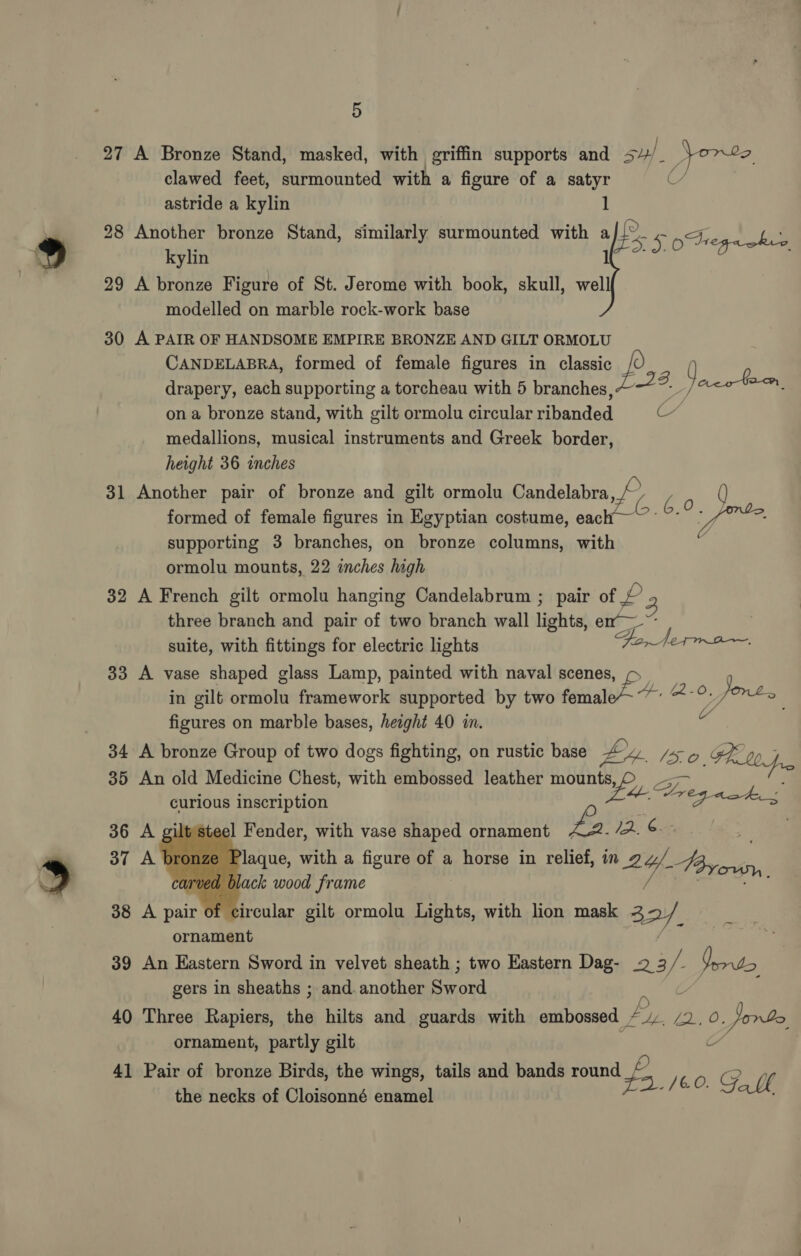 5
27 A Bronze Stand, masked, with griffin supports and 54/- Jones
clawed feet, surmounted with a figure of a satyr
astride a kylin 1
28 Another bronze Stand, similarly surmounted with a £5. 5. 0 Tregaskis
kylin 1
29 A bronze Figure of St. Jerome with book, skull, well
modelled on marble rock-work base
30 A PAIR OF HANDSOME EMPIRE BRONZE AND GILT ORMOLU
CANDELABRA, formed of female figures in classic
drapery, each supporting a torcheau with 5 branches, £23. Jacobson
on a bronze stand, with gilt ormolu circular ribanded
medallions, musical instruments and Greek border,
height 36 inches
31 Another pair of bronze and gilt ormolu Candelabra,
formed of female figures in Egyptian costume, each £6.6.0. Jones
supporting 3 branches, on bronze columns, with
ormolu mounts, 22 inches high
32 A French gilt ormolu hanging Candelabrum ; pair of £3
three branch and pair of two branch wall lights, en
suite, with fittings for electric lights
33 A vase shaped glass Lamp, painted with naval scenes,
in gilt ormolu framework supported by two female £4. 12. 0. Jones
figures on marble bases, height 40 in.
34 A bronze Group of two dogs fighting, on rustic base £4. 15. 0. Phillips
35 An old Medicine Chest, with embossed leather mounts,
curious inscription £4. Tregaskis
36 A gilt steel Fender, with vase shaped ornament £2. 12. 6
37 A bronze Plaque, with a figure of a horse in relief, in 24/- Brown.
carved black wood frame
38 A pair of circular gilt ormolu Lights, with lion mask 32/-
ornament
39 An Eastern Sword in velvet sheath ; two Eastern Dag- 23/- Jones
gers in sheaths ; and another Sword
40 Three Rapiers, the hilts and guards with embossed £4. 12. 0. Jones
ornament, partly gilt
41 Pair of bronze Birds, the wings, tails and bands round
the necks of Cloisonné enamel £2. 16. 0. Gall